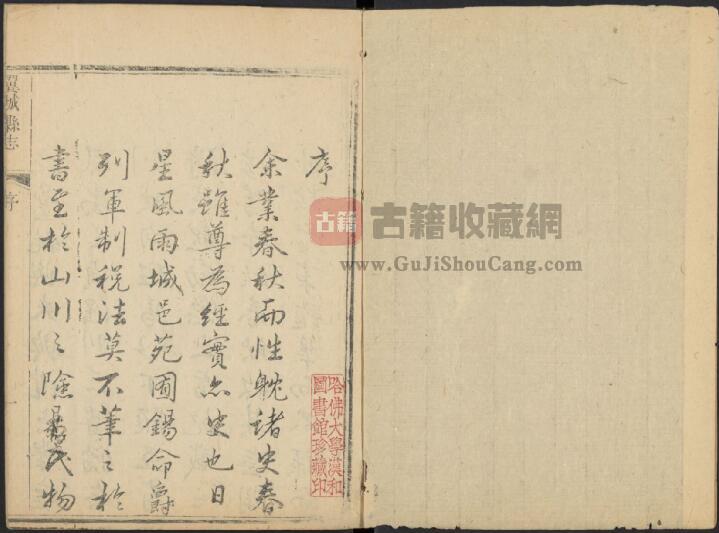 序
余業春秋而性躭諸史春
秋雖尊為經實亦史也日
星風雨城邑苑囿錫命爵
列軍制稅法莫不筆之於
書至於山川之險民物
翼城縣志
序
哈佛大學漢和
圖書館珍藏印
古籍
古籍收藏網
www.GuJiShouCang.com